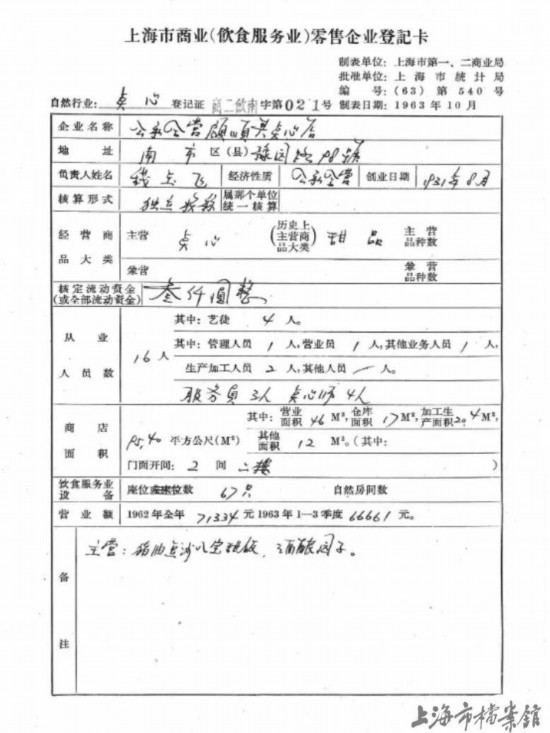 上海市商业(飲食服务业)零售企业登記卡
制表单位:上海市第一、二商业局
批准单位:上海市統計局
編号:(63)第540号
自然行业:点心 登记証 商二飲南字第021号 制表日期:1963年10月
企业名称 公私合营順興点心店
地址 南市区(县)豫园路
负责人姓名 钱点飞 经济性质 公私合营 创业日期 1931年8月
核算形式 独立核算 属那个单位統一核算
经营商品大类 主营 点心 (历史上主营商品大类) 甜品 主营品种数
兼营 兼营品种数
核定流动資金(或全部流动資金) 叁仟圆整
从业人员数 16人 其中:艺徒 4人。
其中:管理人员 1人,营业员 1人,其他业务人员 1人,
生产加工人员 2人,其他人员 一人。
服务员3人 点心师4人
商店面积 平方公尺(M²) 其中:营业面积 46 M²,仓库面积 17 M²,加工生产面积 20.4 M²,
其他面积 12 M²。(其中:
门面开间:2间 二楼 )
飲食服务业设备 座位或座位数 67只 自然房間数
营业額 1962年全年 71334元 1963年1—3季度 66661元。
备注 主营:猪油 八宝 饭、酒酿园子。
上海市檔案館